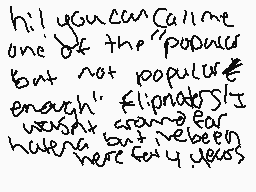 hi! you can call me
one of the "popular
but not popular
enough" flipnoters! I
wasnt around for
hatena but ive been
here for 4 years